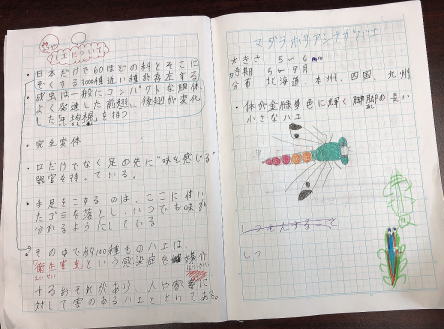 ハエについて
・日本だけで60ほどの科とそこに
ぞくする3000種近い種が存在する
・成虫は一般にコンパクトな胴体
よく発達した前翅、後翅が変化
した平均棍を持つ
・完全変体
・口だけでなく足の先に"味を感じる"
器官を持っている。
・手足をこするのは、ここに付い
たゴミを落とし、いつでも味が
分かるようにしている
・その中で約100種ものハエは、
衛生害虫という感染症を媒介
するおそれがあり、人や家畜に
対して害のあるハエとされてある。
マダラホソアシナガバエ
大きさ 5～6mm
時期 5～9月
分布 北海道、本州、四国、九州
・体が金緑色に輝く脚の長い
小さなハエ
しつ